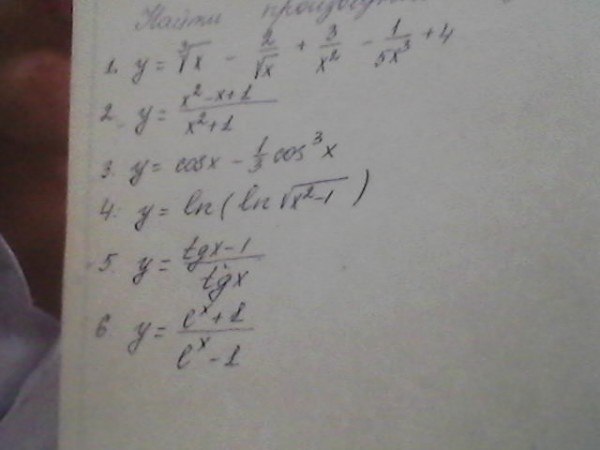 Найти производную
1. y = ∛x - 2/√x + 3/x² - 1/5x³ + 4
2. y = x²-x+1/x²+1
3. y = cosx - 1/3 cos³x
4. y = ln(ln√x²-1)
5. y = tgx-1/tgx
6. y = eˣ+1/eˣ-1